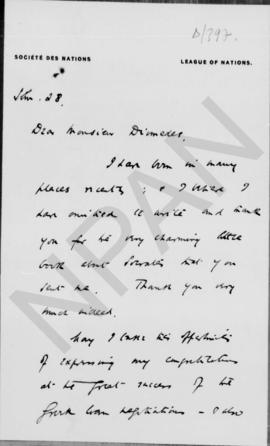 D/397.
SOCIÉTÉ DES NATIONS
LEAGUE OF NATIONS.
28.
Dear Monsieur Diomedes,
I have been in many
places recently; & I
have omitted to write and thank
you for the very charming little
book about Socrates that you
sent me. Thank you very
much indeed.
May I take this opportunity
of expressing my congratulations
at the great success of the
Greek loan negotiations - I also
NPAN